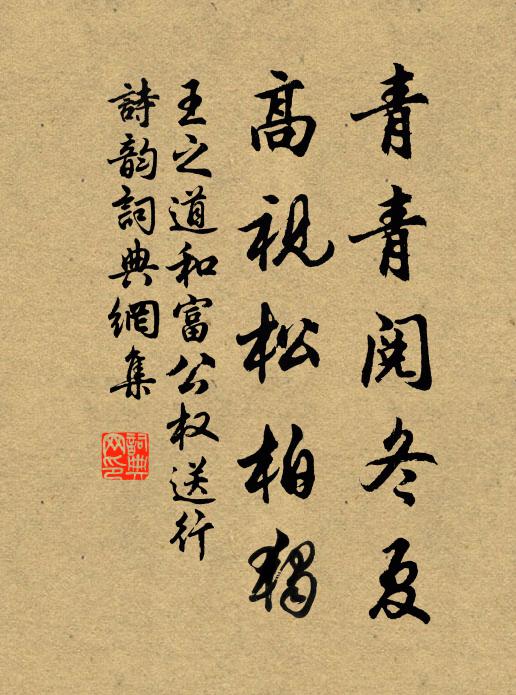 青青阅冬夏
高视松柏独
王之道和富公权送行
詩韵詞典網集
詞典
网印